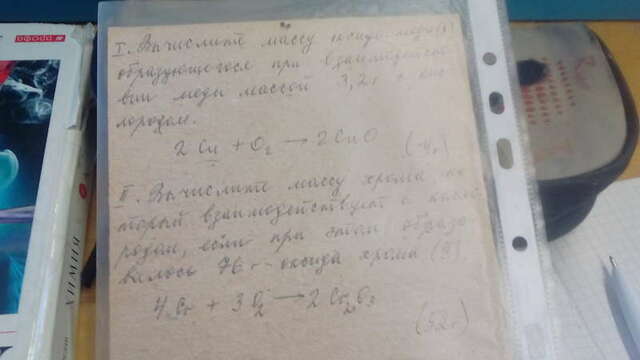 I. Вычислите массу оксида меди(II)
образующегося при взаимодейст-
вии меди массой 3,2г с кис-
лородом.
2 Cu + O₂ → 2 CuO
(4г)
II. Вычислите массу хрома, ко-
торый взаимодействует с кисло-
родом, если при этом образо-
валось 76 г оксида хрома (III).
4 Cr + 3 O₂ → 2 Cr₂O₃
(52г)
ХИМИЯ
дрофа